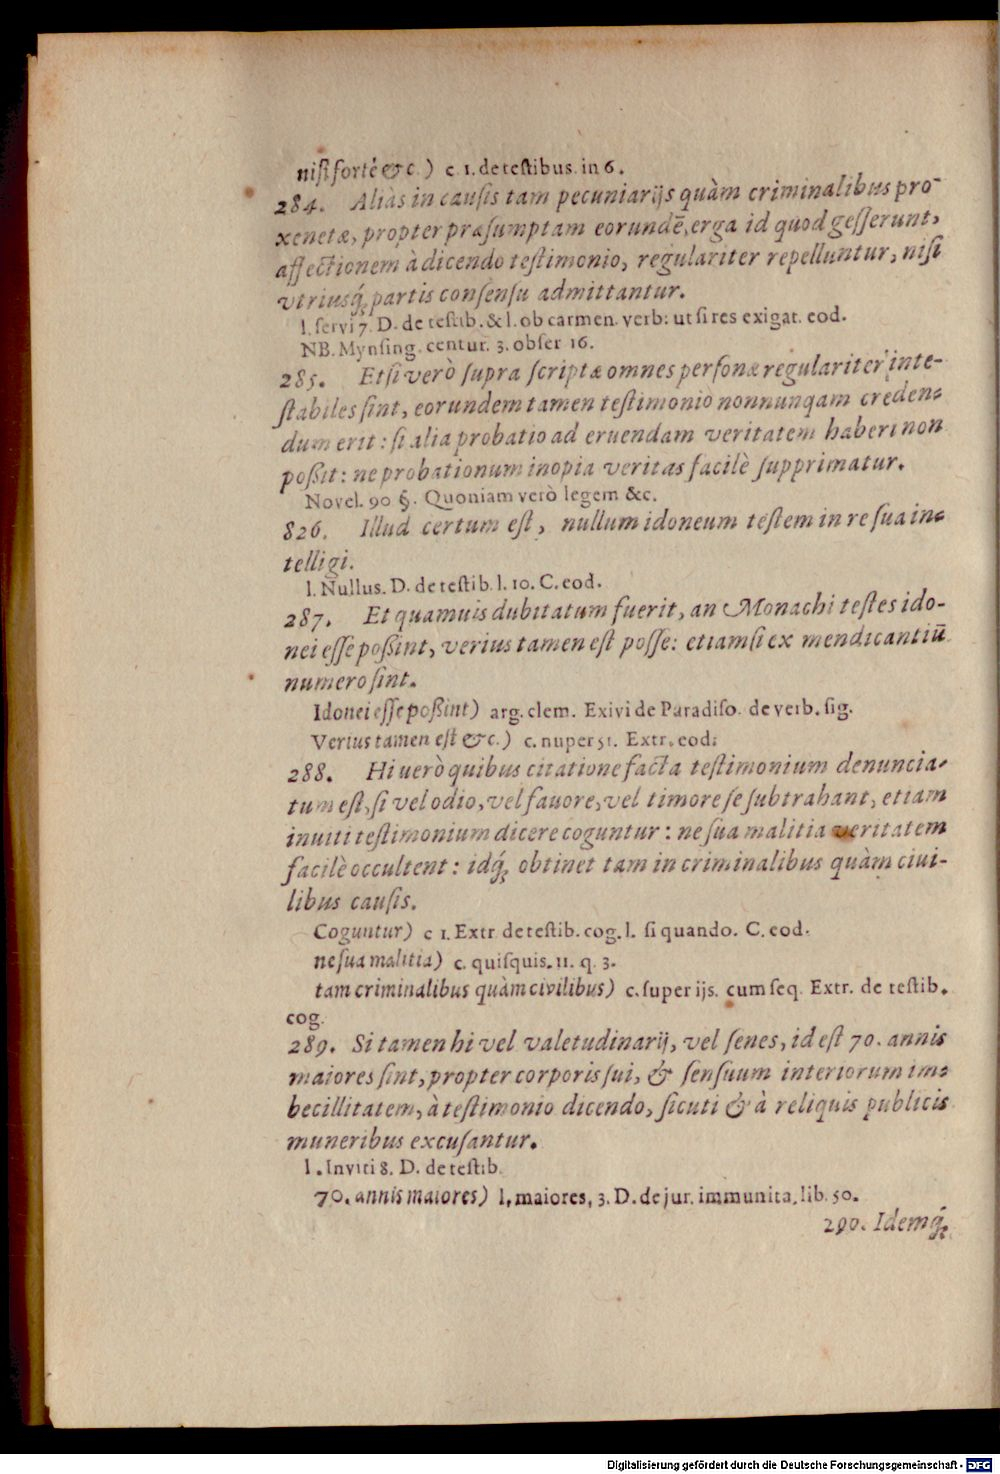 niſi fortè &c.) c. 1. de teſtibus. in 6.
284. Aliàs in cauſis tam pecuniarijs quàm criminalibus pro-
xenetæ, propter præſumptam eorundē, erga id quod geſſerunt,
affectionem à dicendo teſtimonio, regulariter repelluntur, niſi
vtriusq́; partis conſenſu admittantur.
l. ſervi 7. D. de teſtib. & l. ob carmen. verb: ut ſi res exigat. eod.
NB. Mynſing. centur. 3. obſer 16.
285. Etſi verò ſupra ſcriptæ omnes perſonæ regulariter inte-
ſtabiles ſint, eorundem tamen teſtimonio nonnunqam creden-
dum erit: ſi alia probatio ad eruendam veritatem haberi non
poßit: ne probationum inopia veritas facilè ſupprimatur.
Novel. 90 §. Quoniam verò legem &c.
826. Illud certum eſt, nullum idoneum teſtem in re ſua in-
telligi.
l. Nullus. D. de teſtib. l. 10. C. eod.
287. Et quamuis dubitatum fuerit, an Monachi teſtes ido-
nei eſſe poßint, verius tamen eſt poſſe: etiamſi ex mendicantiū
numero ſint.
Idonei eſſe poßint) arg. clem. Exivi de Paradiſo. de verb. ſig.
Verius tamen eſt &c.) c. nuper 51. Extr. eod:
288. Hi uerò quibus citatione facta teſtimonium denuncia-
tum eſt, ſi vel odio, vel fauore, vel timore ſe ſubtrahant, etiam
inuiti teſtimonium dicere coguntur: ne ſua malitia veritatem
facilè occultent: idq́; obtinet tam in criminalibus quàm ciui-
libus cauſis.
Coguntur) c 1. Extr de teſtib. cog. l. ſi quando. C. eod.
ne ſua malitia) c. quiſquis. 11. q. 3.
tam criminalibus quàm civilibus) c. ſuper ijs. cum ſeq. Extr. de teſtib.
cog.
289. Si tamen hi vel valetudinarij, vel ſenes, id eſt 70. annis
maiores ſint, propter corporis ſui, & ſenſuum interiorum im-
becillitatem, à teſtimonio dicendo, ſicuti & à reliquis publicis
muneribus excuſantur.
l. Inviti 8. D. de teſtib.
70. annis maiores) l, maiores, 3. D. de jur. immunita. lib. 50.
290. Idemq́;
Digitalisierung gefördert durch die Deutsche Forschungsgemeinschaft - DFG